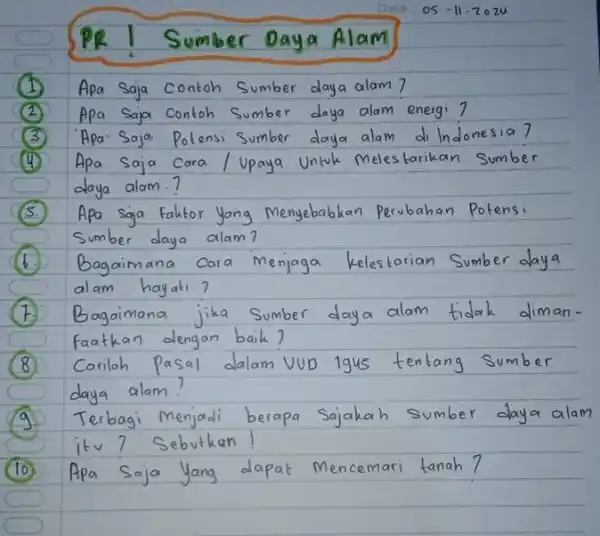 Date 05-11-2024
PR ! Sumber Daya Alam
1 Apa Saja Contoh Sumber daya alam ?
2 Apa Saja Contoh Sumber daya alam energi ?
3 Apa Saja Potensi Sumber daya alam di Indonesia ?
4 Apa Saja Cara / Upaya Untuk Melestarikan Sumber
daya alam . ?
5. Apa Saja Faktor Yang Menyebabkan Perubahan Potensi
Sumber daya alam ?
6 Bagaimana Cara Menjaga kelestarian Sumber daya
alam hayati ?
7. Bagaimana jika Sumber daya alam tidak diman-
faatkan dengan baik ?
8 Carilah Pasal dalam UUD 1945 tentang Sumber
daya alam ?
9 Terbagi Menjadi berapa Sajakah Sumber daya alam
itu ? Sebutkan !
10 Apa Saja Yang dapat Mencemari tanah ?